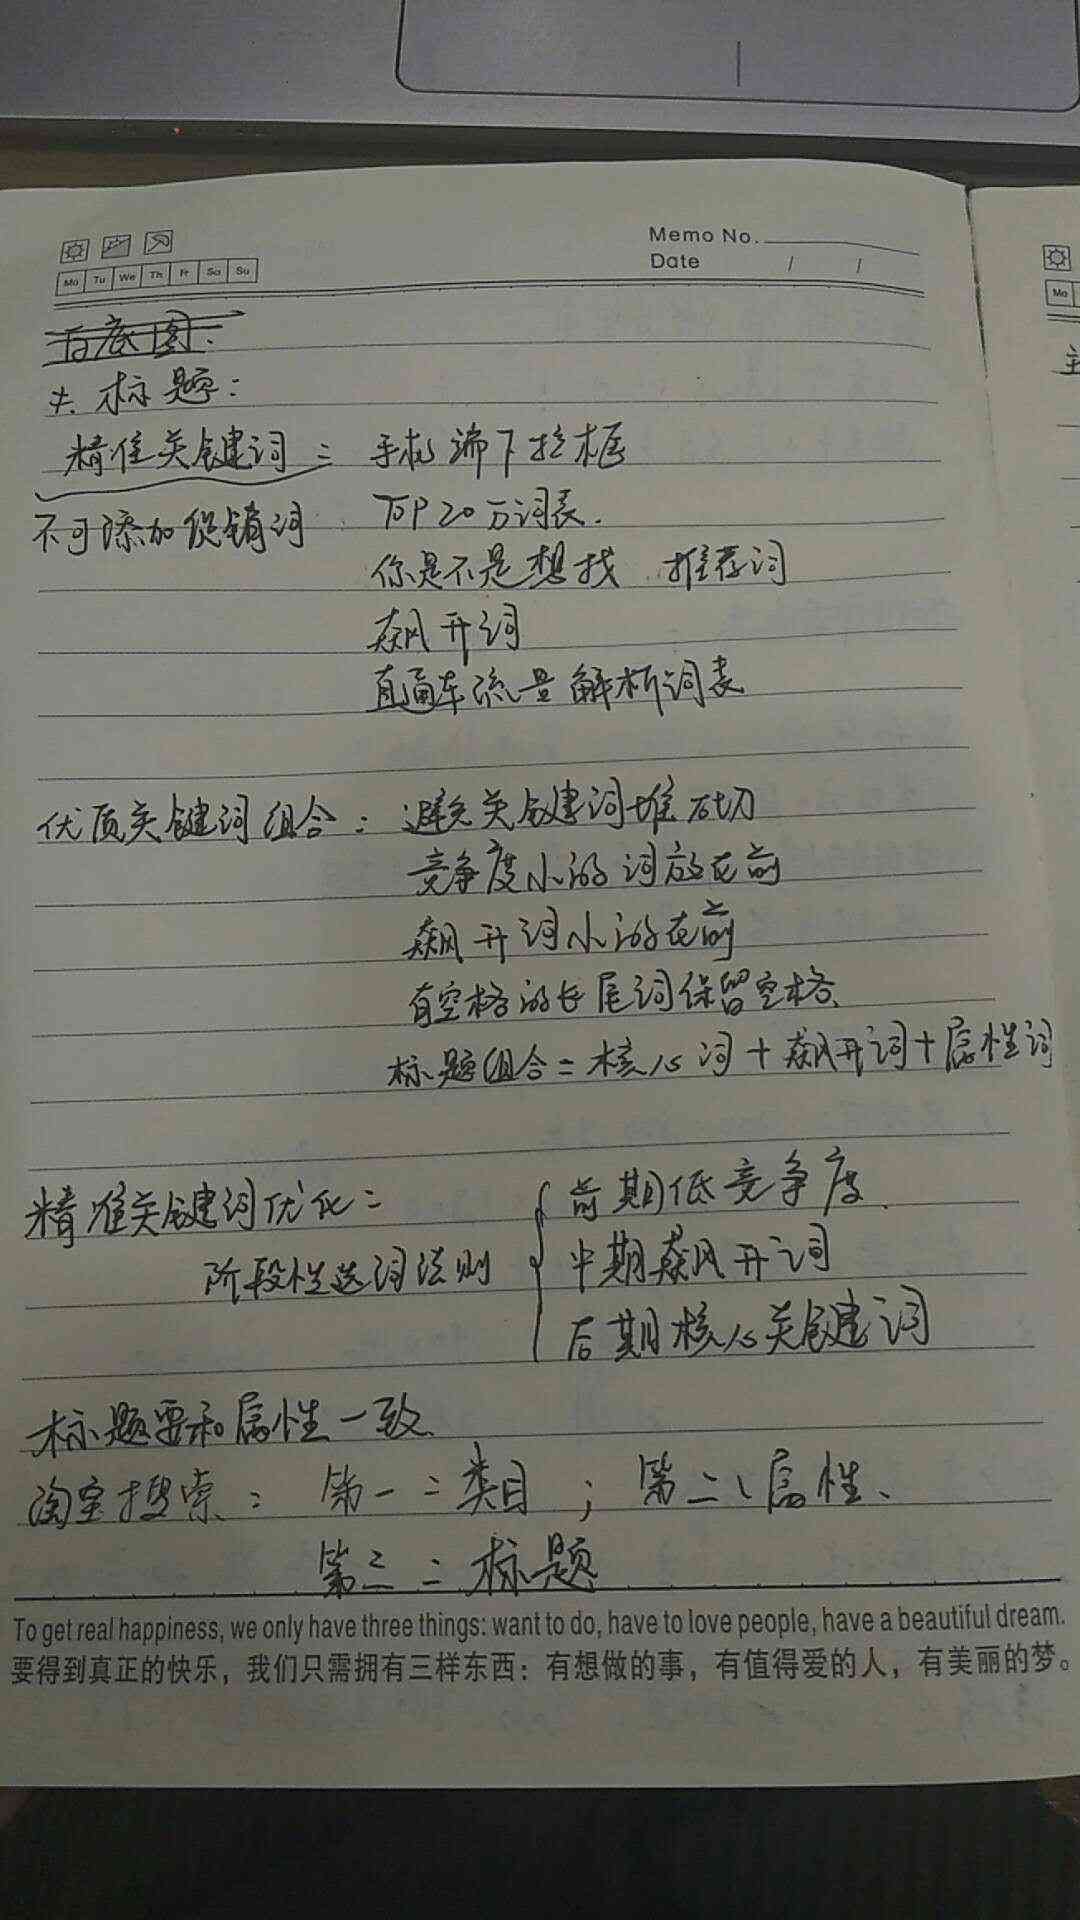 Memo No.
Mo Tu We Th Fr Sa Su
Date / /
白底图:
标题:
精准关键词: 手机端下拉框
不可添加促销词 TOP20万词表.
你是不是想找 推荐词
飙升词
直通车流量解析词表
优质关键词组合: 避免关键词堆砌
竞争度小的词放在前
飙升词小的在前
有空格的长尾词保留空格
标题组合=核心词+飙升词+属性词
精准关键词优化:
阶段性选词法则
前期低竞争度
中期飙升词
后期核心关键词
标题要和属性一致
淘宝搜索: 第一:类目; 第二、属性、
第三:标题
To get real happiness, we only have three things: want to do, have to love people, have a beautiful dream.
要得到真正的快乐，我们只需拥有三样东西：有想做的事，有值得爱的人，有美丽的梦。
Mo
主